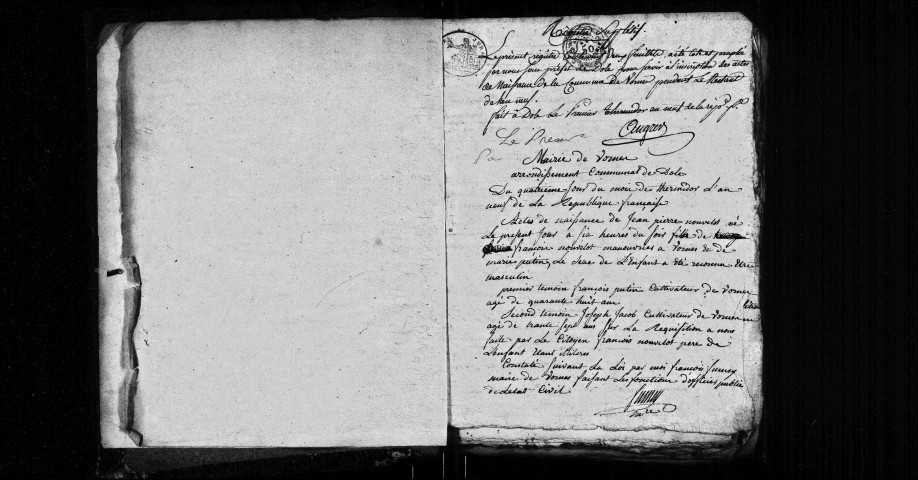 Registre Suppletif.
Le présent régistre deux feuillets a été coté et paraphé
par nous Sous préfet de Dole pour servir à l'inscription des actes
de Naissance de la Commune de Vornes pendant le Restant
de l'an neuf.
fait à Dole Le Premier thermidor an neuf de la rép. fse.
Le Presen
Pa Mairie de Vornes
arrondissement Communal de Dole
Du quatrieme jour du mois de thermidor L'an
neuf de La Republique française
Actes de naissance de Jean pierre nouvelot né
Le present jour a six heures du soir fils de
francois nouvelot manouvrier a Vornes et de
marie putin, Le sexe de L'Enfant a été reconnu Etre
masculin
premier temoin françois putin Cultivateur de Vornes
agé de quarante huit ans
Second temoin Joseph Jacob Cultivateur de Vornes
agé de trante sept ans Sur La Requisition a nous
faite par Le Citoyen francois nouvelot pere de
L'enfant Etant illiteré
Constaté Suivant La Loi par moi françois
maire de Vornes faisant Les fonctions d'officier public
de L'etat Civil